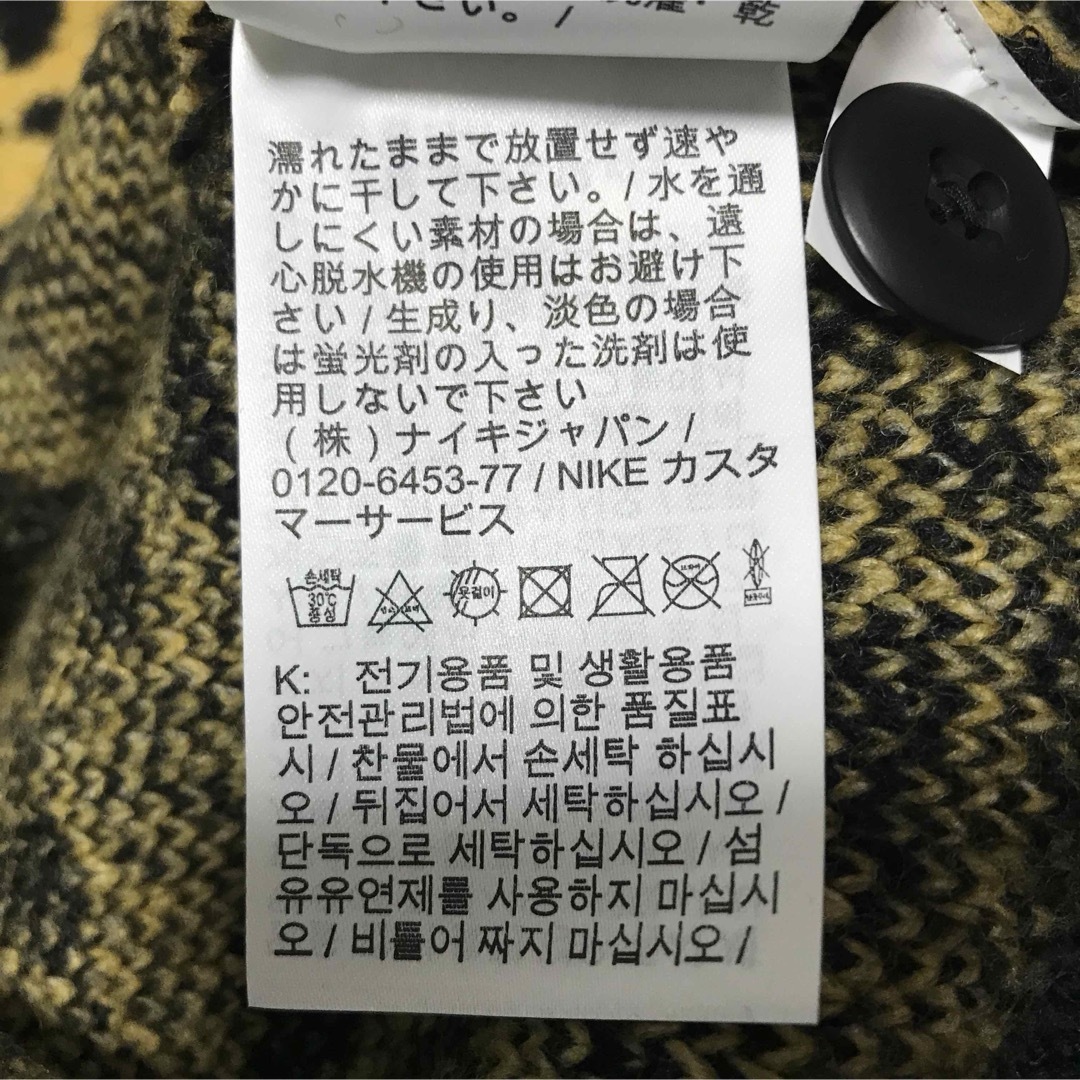 下さい。/
濡れたままで放置せず速や
かに干して下さい。/ 水を通
しにくい素材の場合は、遠
心脱水機の使用はお避け下
さい / 生成り、淡色の場合
は蛍光剤の入った洗剤は使
用しないで下さい
(株)ナイキジャパン /
0120-6453-77 / NIKE カスタ
マーサービス
손세탁
30℃
중성
옷걸이
K: 전기용품 및 생활용품
안전관리법에 의한 품질표
시 / 찬물에서 손세탁 하십시
오 / 뒤집어서 세탁하십시오 /
단독으로 세탁하십시오 / 섬
유유연제를 사용하지 마십시
오 / 비틀어 짜지 마십시오 /